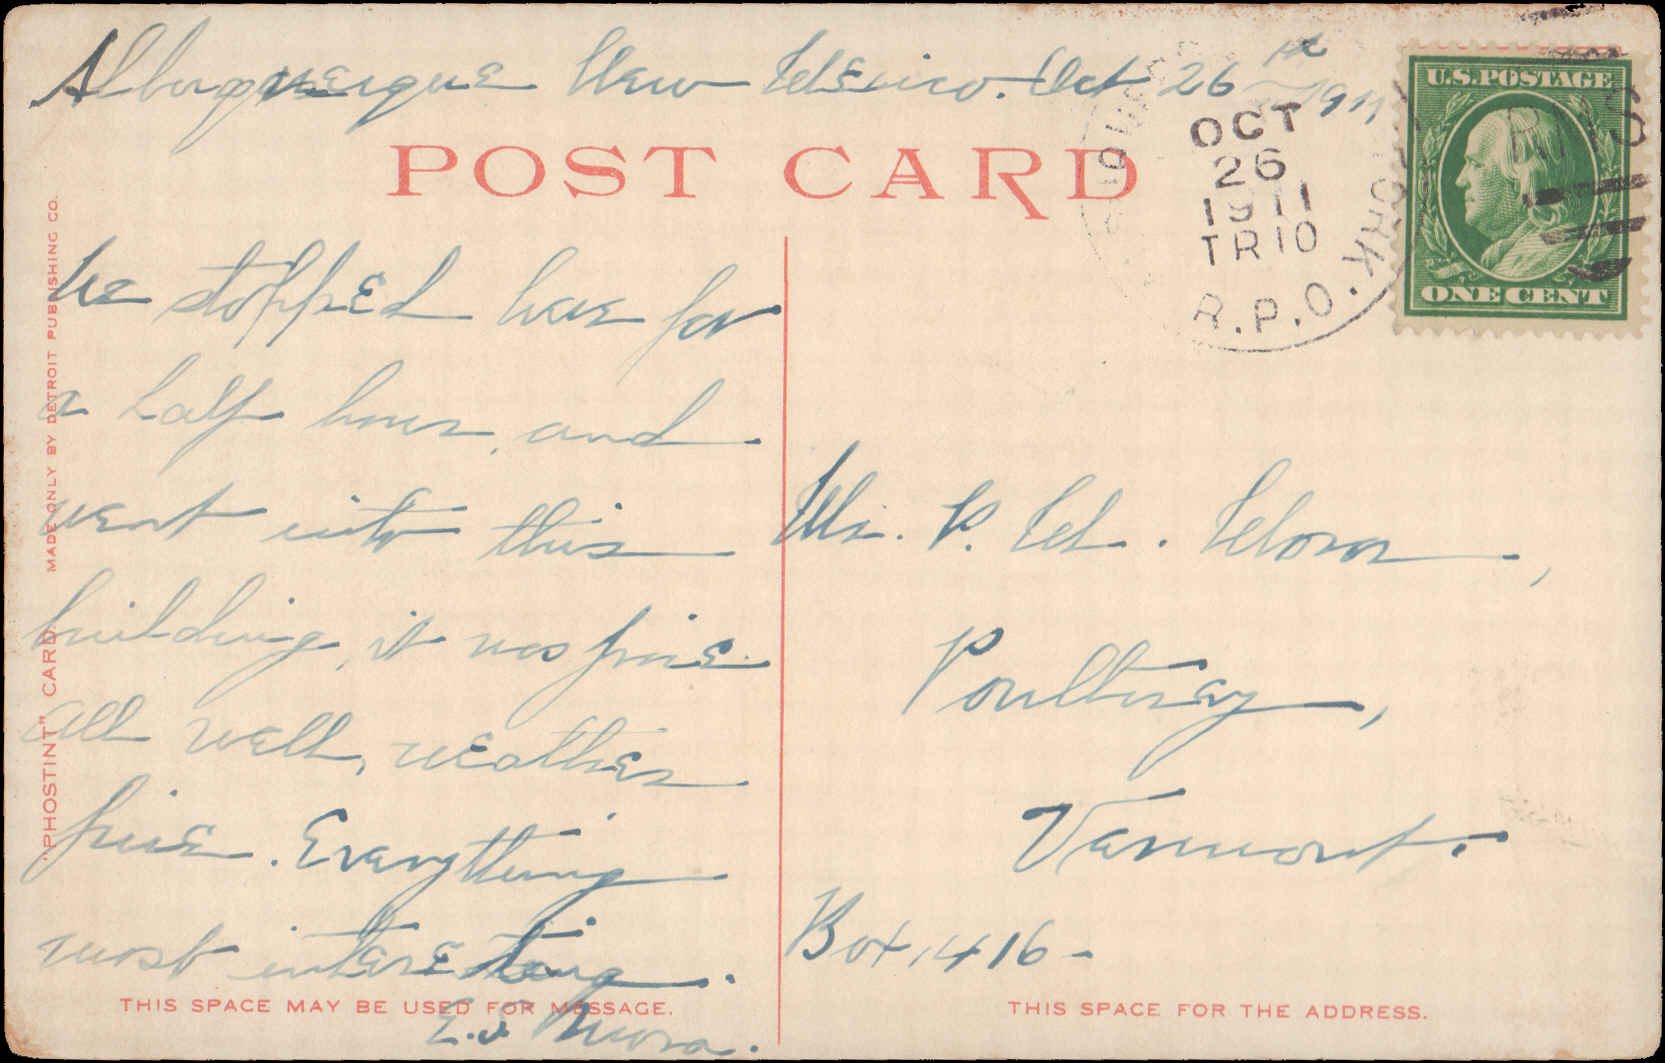 Albuquerque New Mexico. Oct 26th 1911
POST CARD
U.S. POSTAGE
ONE CENT
OCT
26
1911
TR 10
R.P.O.
We stopped here for
a half hour, and
went into this
building, it was fine.
all well, weather
fine. Everything
most interesting.
Mr. P. M.
Poultney,
Vermont.
Box 416-
"PHOSTINT" CARD MADE ONLY BY DETROIT PUBLISHING CO.
THIS SPACE MAY BE USED FOR MESSAGE.
THIS SPACE FOR THE ADDRESS.